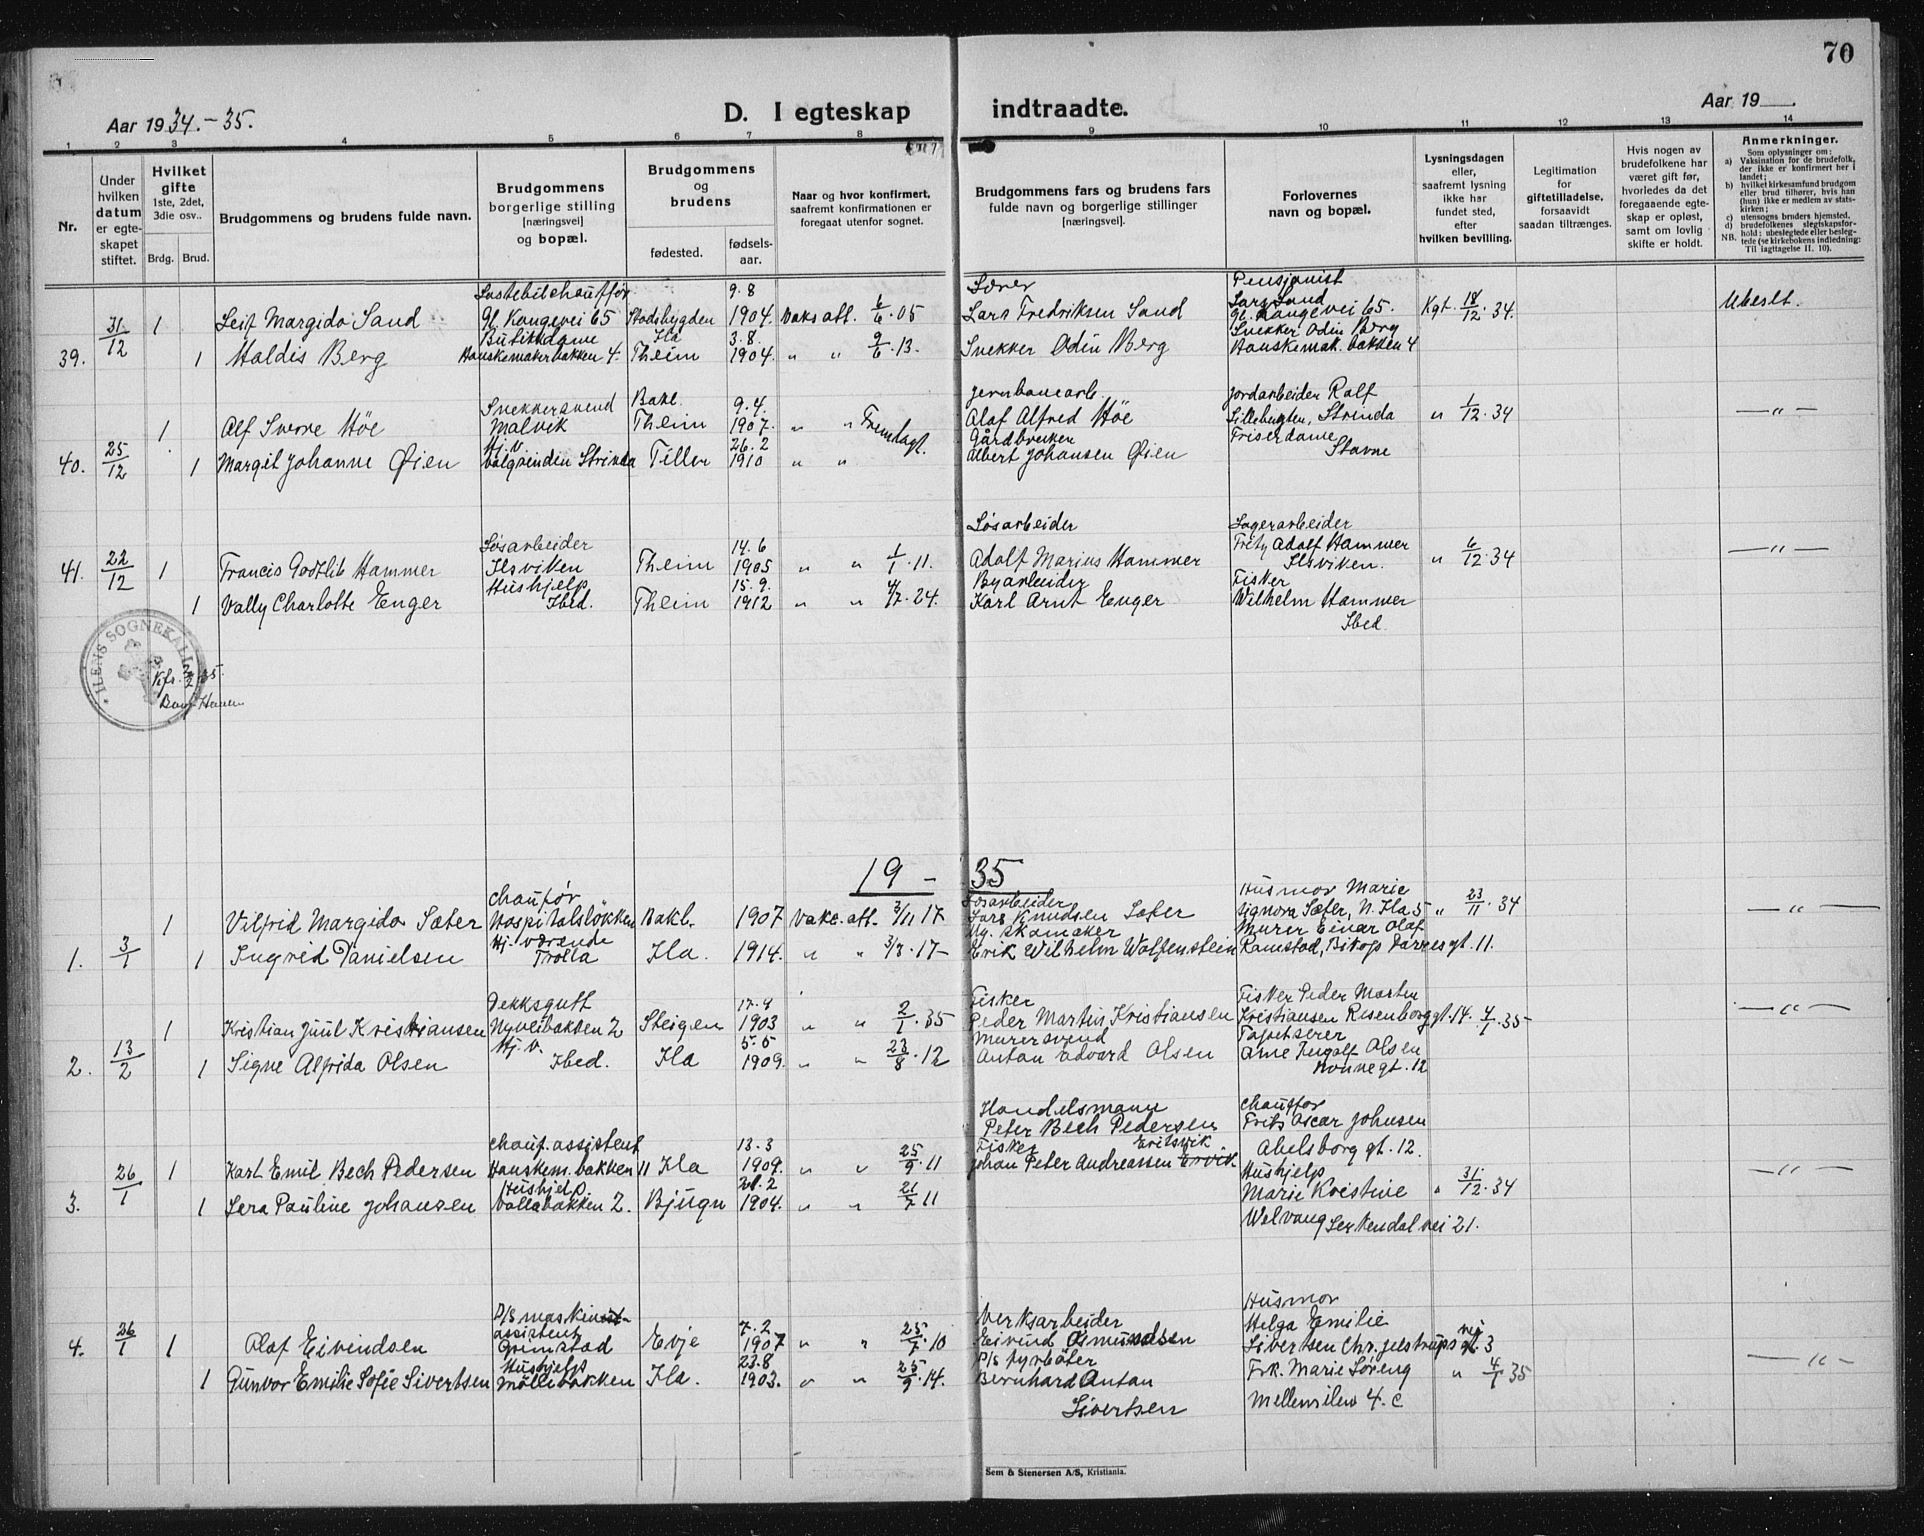 70
Aar 1934.-35.
D. I egteskap indtraadte.
Aar 19
1 2 3 4 5 6 7 8 9 10 11 12 13 14
Nr.
Under hvilken datum er egteskapet stiftet.
Hvilket gifte 1ste, 2det, 3die osv..
Brdg. Brud.
Brudgommens og brudens fulde navn.
Brudgommens borgerlige stilling [næringsvei] og bopæl.
Brudgommens og brudens
fødested. fødsels-aar.
Naar og hvor konfirmert, saafremt konfirmationen er foregaat utenfor sognet.
Brudgommens fars og brudens fars fulde navn og borgerlige stillinger [næringsvei].
Forlovernes navn og bopæl.
Lysningsdagen eller, saafremt lysning ikke har fundet sted, efter hvilken bevilling.
Legitimation for giftetilladelse, forsaavidt saadan tiltrænges.
Hvis nogen av brudefolkene har været gift før, hvorledes da det foregaaende egteskap er opløst, samt om lovlig skifte er holdt.
Anmerkninger.
Som oplysninger om:
a) Vaksination for de brudefolk, der ikke er konfirmert her i landet;
b) hvilket kirkesamfund brudgom eller brud tilhører, hvis han (hun) ikke er medlem av statskirken;
c) utensogns bruders hjemsted.
d) brudefolkenes slegtskapsforhold: ubeslegtede eller beslegtede (se kirkebokens indledning: NB. Til iagttagelse II. 10).
Lastebilchauffør 9.8 Lærer Pensjonist
31/12 1 Leif Margido Sand Gl. Kongevei 65 Stadsbygden 1904. Vaks att. 6/6.05 Lars Fredriksen Sand Lars Sand Gl. Kongevei 65. Kgt. 18/12.34. Ubeslt.
Butikkdame Ila 3.8. Snekker Odin Berg
39. 1 Haldis Berg Hanskemakerbakken 4. Theim 1904. " " 9/6.13. Snekker Odin Berg Hanskemak. bakken 4
Snekkersvend Bakl. 9.4. Jernbanearb. Jordarbeider Ralf
1 Alf Sverre Høe Malvik Theim 1907. " " Fremlagt. Olaf Alfred Høe Lillebugten, Strinda " 1/12.34 —"—
25/12 Hj.v. 26.2 Gårdbruker Friserdame
40. 1 Margit Johanne Øien Valgrinden Strinda Tiller 1910 " " Albert Johansen Øien Stavne
Løsarbeider Lagerarbeider
Løsarbeider 14.6 Fritz Adolf Hammer
41. 22/12 1 Francis Godtlib Hammer Ilsviken Theim 1905 " " 1/1.11. Adolf Marius Hammer Ilsviken. " 6/12.34 —"—
Hushjelp 15.9. Byarbeider Fisker
1 Vally Charlotte Enger Ibed. Theim 1912 " " 4/7.24. Karl Arnt Enger Wilhelm Hammer
Ibed.
ILENS SOGNEKALL
19 - 35
Chauffør Løsarbeider Husmor Marie
1 Vilfrid Margido Sæter Hospitalsløkken Bakl. 1907 Vakc. att. 3/11 17 Lars Knudsen Sæter Signora Sæter, N. Ila 5 " 23/11.34 —"—
Hj. værende Skomaker Murer Einar Olaf
1. 3/1 1 Ingrid Danielsen Trolla Ila. 1914. " " 3/3.17- Erik Wilhelm Wolfenstein Ramstad, Biskop Darresgt. 11.
Dekksgutt 17.9 Fisker Fisker Peder Morten
1 Kristian Juul Kristiansen Nyveibakken 2 Steigen 1903 " " 2/1.35 Peder Martin Kristiansen Kristiansen Rosenborggt. 14. 4/1.35 —"—
Hj. v. 5.5 Murersvend Tapetserer
2. 13/2 1 Signe Alfrida Olsen Ibed. Ila 1909. " " 23/8.12 Anton Edvard Olsen Arne Ingolf Olsen
Nonnegt. 12
Handelsmann Chauffør
Peter Bech Pedersen Frits Oscar Johnsen
Chauf. assistent 13.3 Fisker Abelsborg gt. 12.
26/1 1 Karl Emil Bech Pedersen Hanskem. bakken 11 Ila 1909. " " 25/9.11 Johan Peter Andreassen Hushjelp —"—
Hushjelp 21.2 Marie Kristine " 31/12.34
3. 1 Sera Pauline Johansen Vollabakken 2. Bjugn 1904. " " 21/7 11
Welvang Lerkendal vei 21.
D/S maskinist- Verksarbeider Husmor
assistent 7.2 Helga Emilie
4. 26/1 1 Olaf Eivindsen Grimstad Evje 1907 " " 25/7.10 Eivind Osmundsen Sivertsen Chr. Jelstrups vei 3
Hushjelp 23.8 D/S fyrbøter
1 Gunvor Emilie Sofie Sivertsen Møllebakken Ila. 1903. " " 25/9.14. Bernhard Antan Frk. Marie Søreng " 4/1 35 —"—
Sivertsen Mellemilen 4. c
Sem & Stenersen A/S, Kristiania.